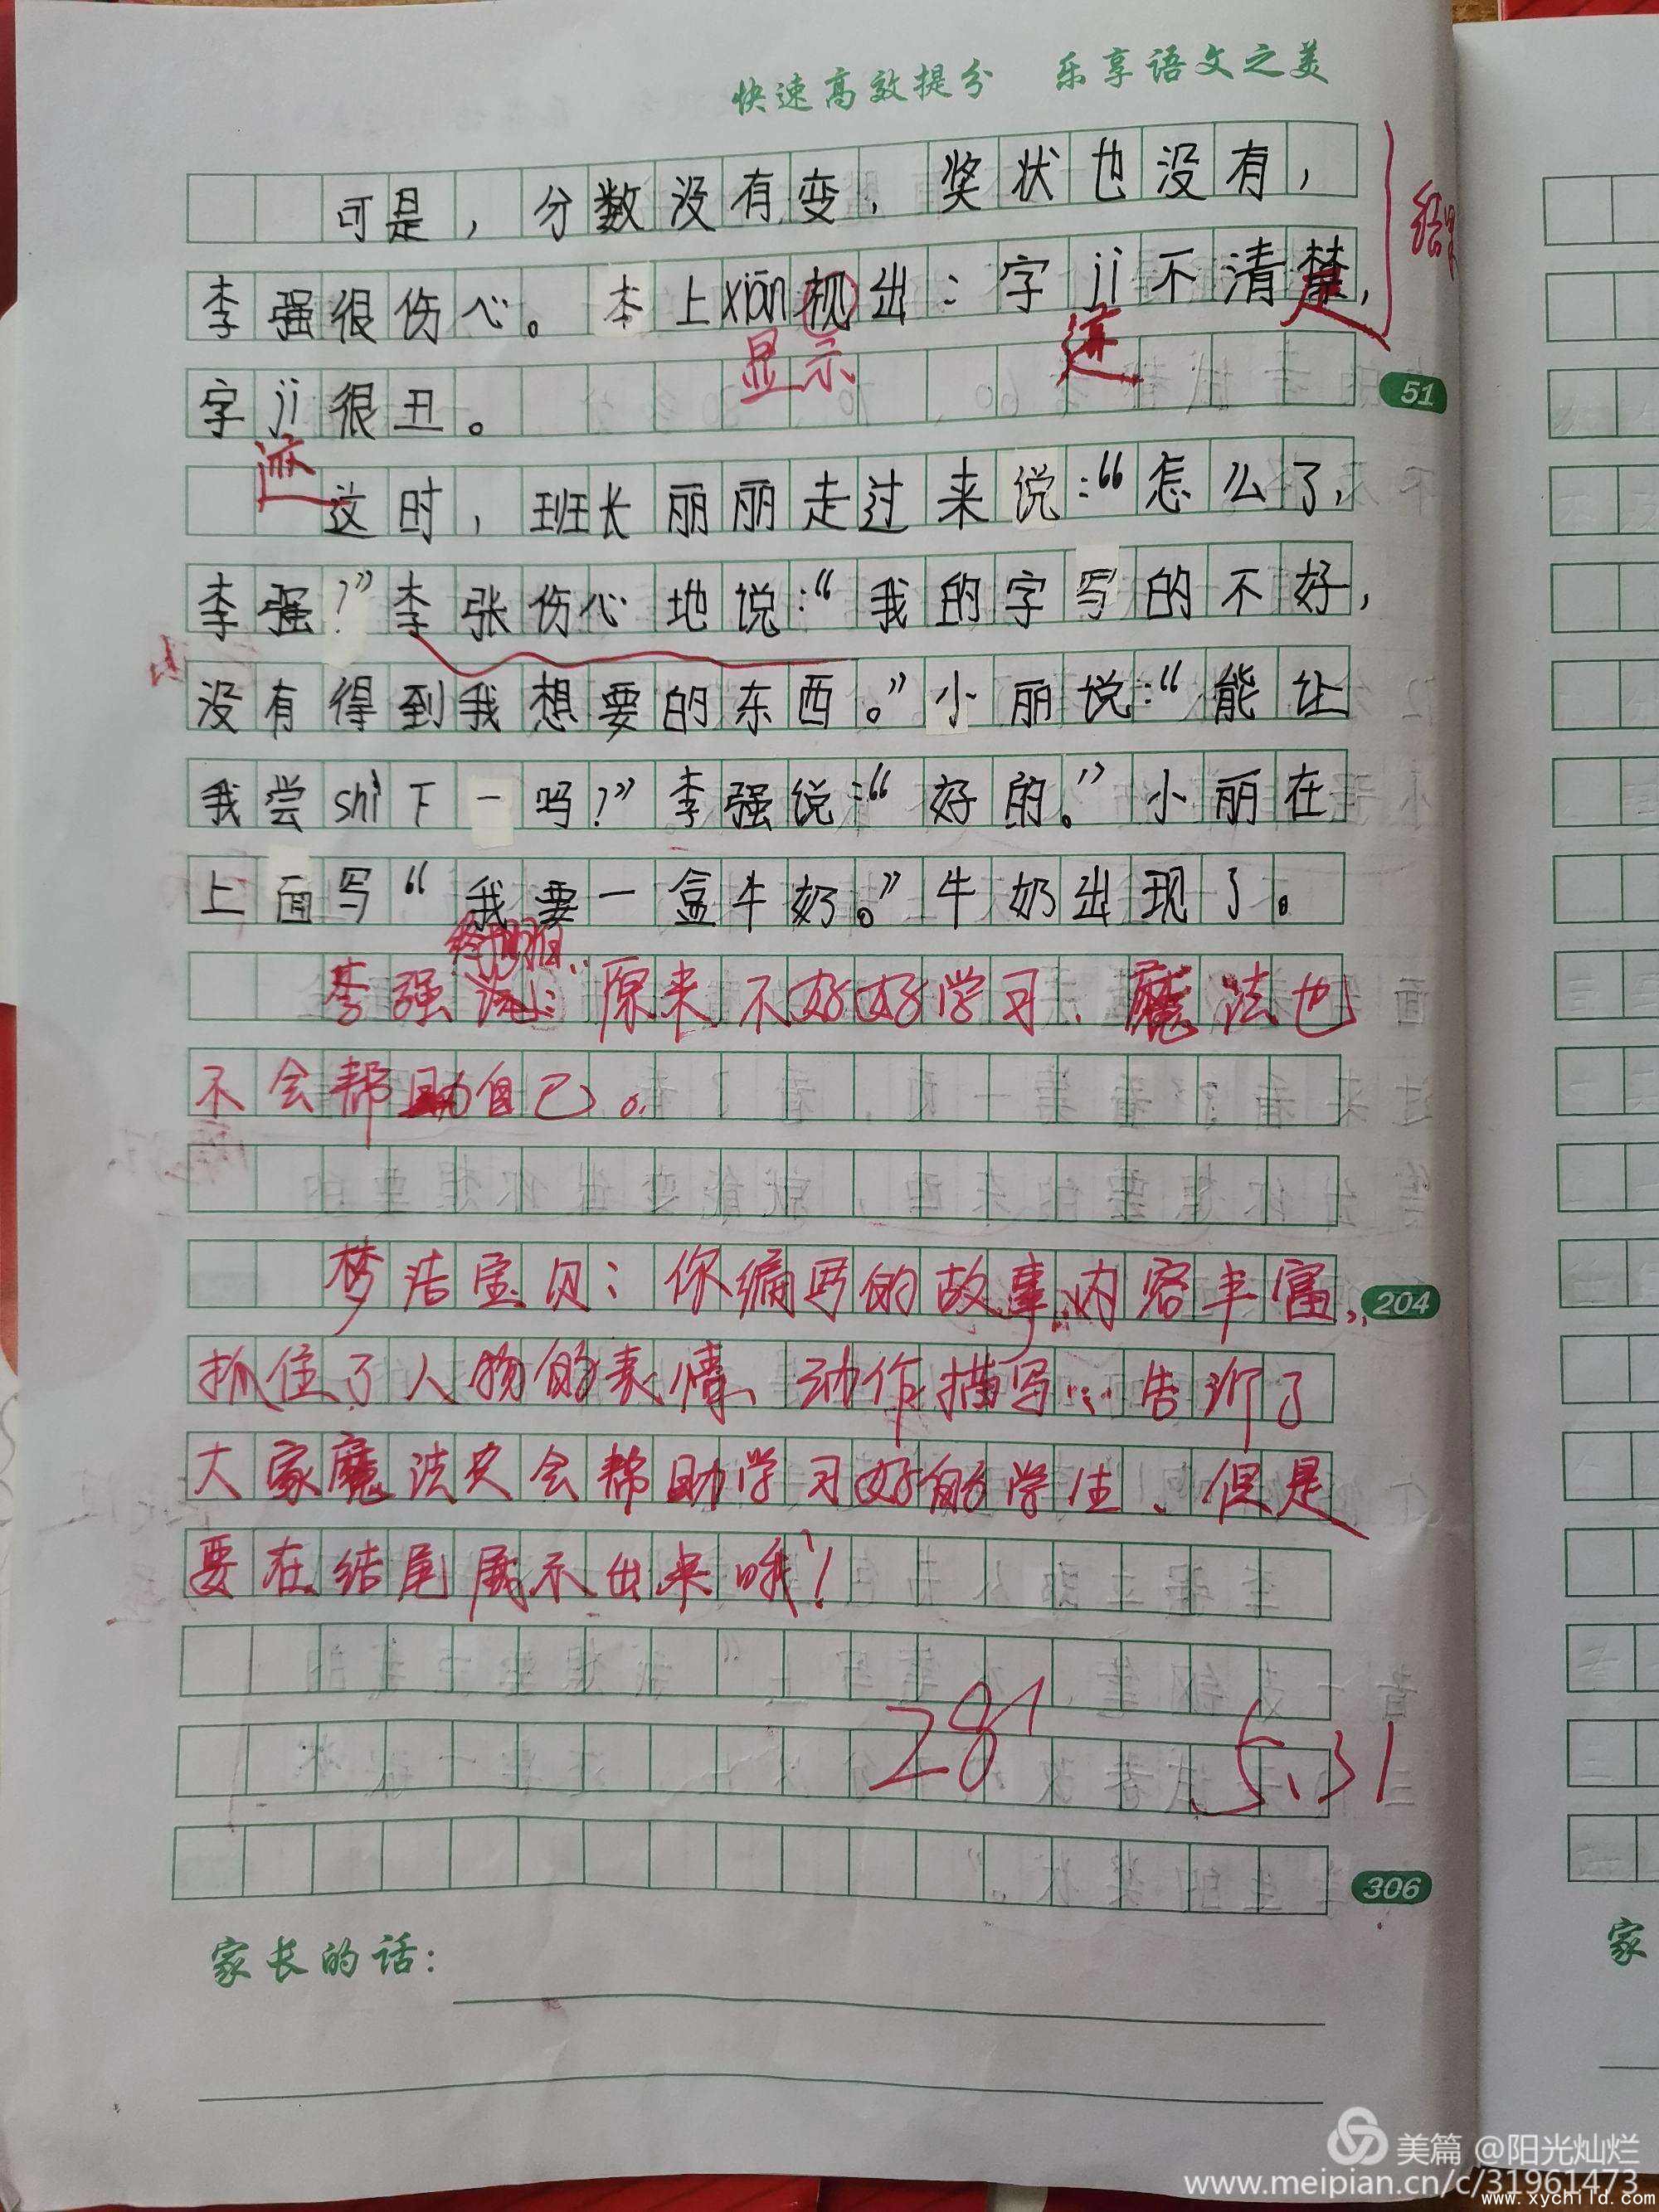 快速高效提分 乐享语文之美
可是，分数没有变，奖状也没有，
李强很伤心。本上xiǎn视出：字jì不清楚，
显示 迹
字jì很丑。
迹
这时，班长丽丽走过来说：“怎么了，
李强？”李张伤心地说：“我的字写的不好，
没有得到我想要的东西。”小丽说：“能让
我尝shì下一吗？”李强说：“好的。”小丽在
上面写“我要一盒牛奶。”牛奶出现了。
李强 原来不好好学习、魔法也
不会帮助自己。
梦洁宝贝：你编写的故事内容丰富，
抓住了人物的表情、动作描写，告诉了
大家魔法只会帮助学习好的学生、但是
要在结尾展示出来哦！
28
5.31
51
204
306
家长的话：
家
美篇 @阳光灿烂
www.meipian.cn/c/31961473
www.xychild.com